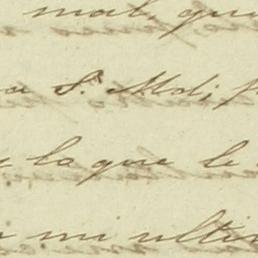 mal, que
a S.r Md,
y la que le
mi ultim